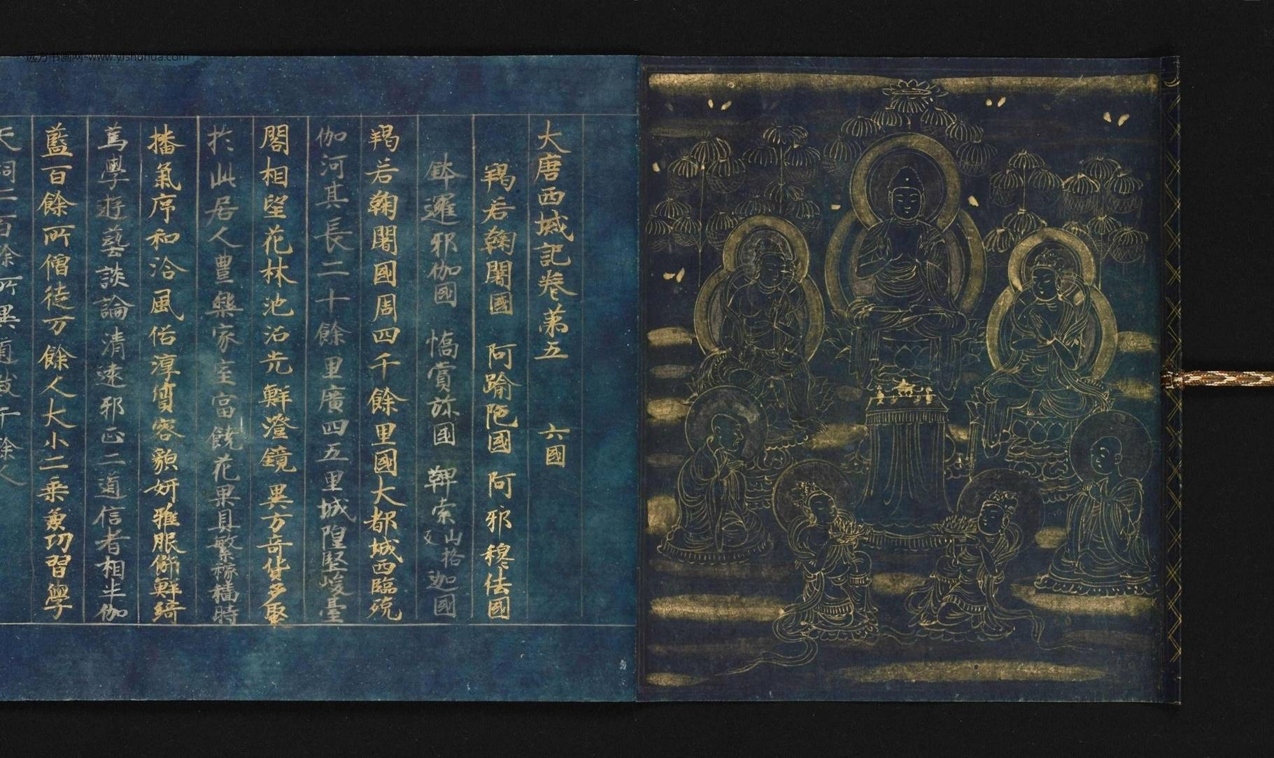 大唐西域記卷苐五 六國
羯若鞠闍國 阿踰陁國 阿邪穆佉國
鉢邏邪伽國 憍賞弥國 鞞索山格反迦國
羯若鞠闍國周四千餘里國大都城西臨殑
伽河其長二十餘里廣四五里城隍堅峻臺
閣相望花林池沼光鮮澄鏡異方奇貨多聚
於此居人豊樂家室富饒花果具繁稼穡時
播氣序和洽風俗淳質容貌妍雅服飾鮮綺
篤學遊藝談論清遠邪正二道信者相半伽
藍百餘所僧徒万餘人大小二乘兼功習學
天祠二百餘所異道數千餘人
www.yishuhua.com